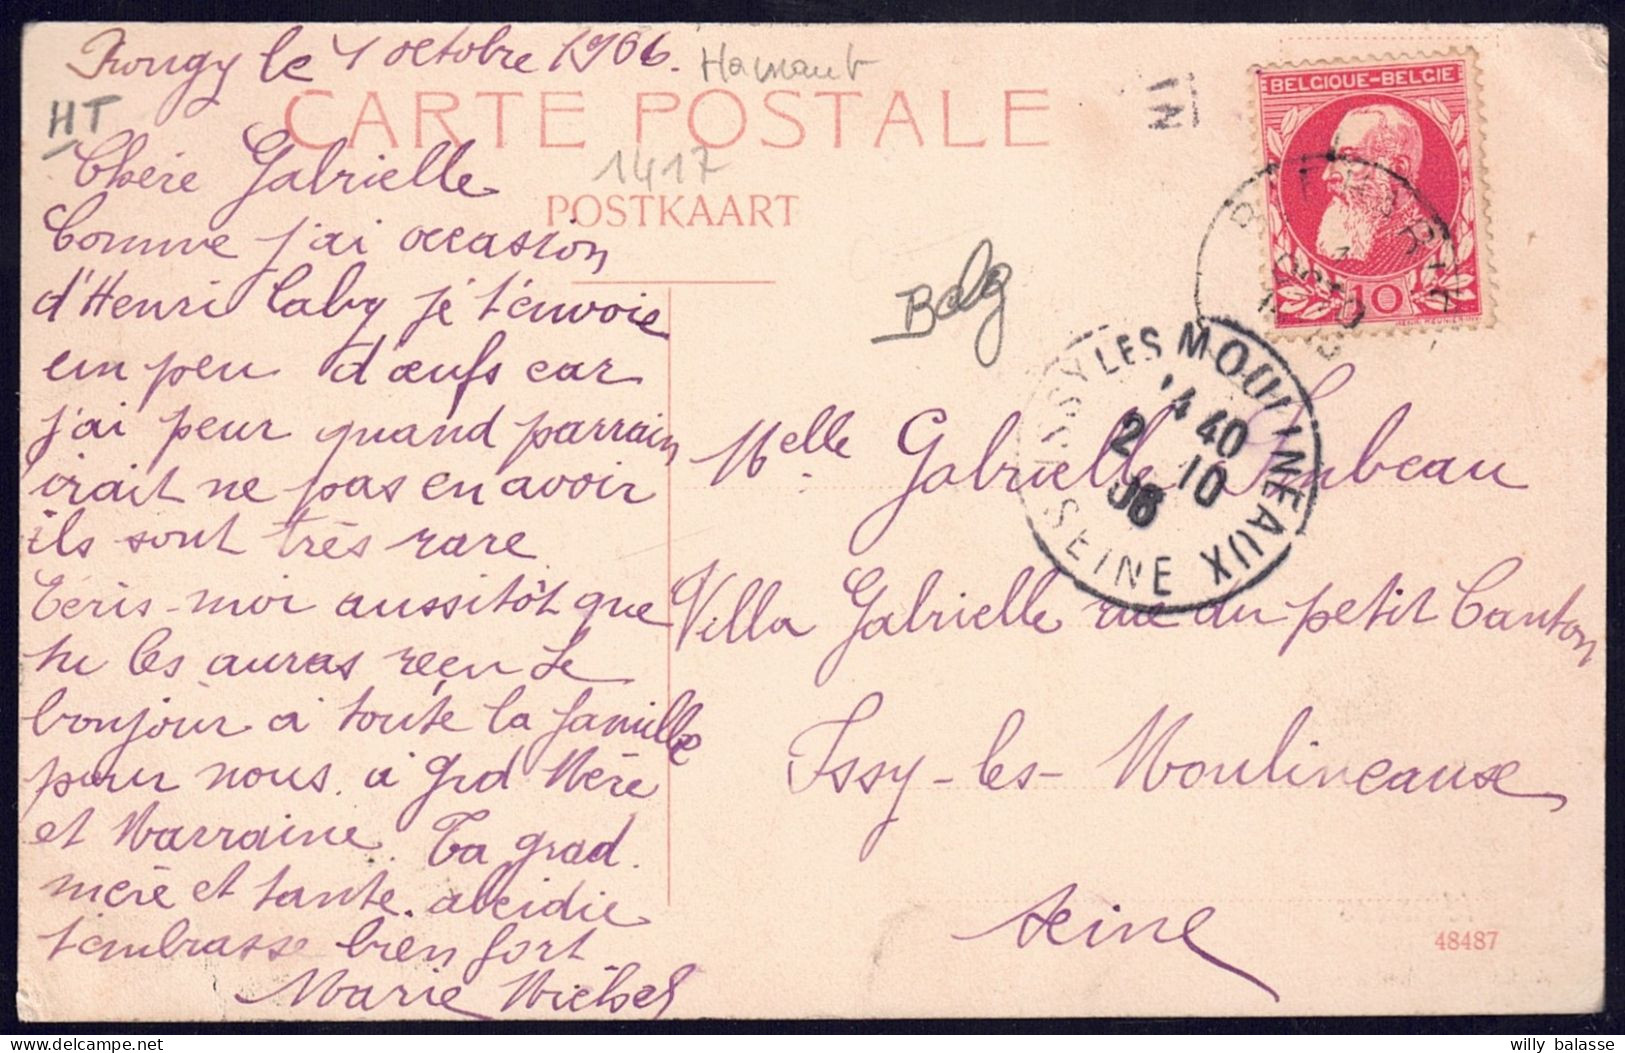 Rongy le 1 octobre 1906.
Hainaut
HT
CARTE POSTALE
1417
POSTKAART
Belg
IN
BELGIQUE-BELGIE
10
Chére Gabrielle
Comme j'ai occasion
d'Henri Caby je t'envoie
un peu d'œufs car
j'ai peur quand parrain
irait ne pas en avoir
ils sont très rare
Ecris-moi aussitôt que
tu les auras reçu Le
bonjour a toute la famille
pour nous. a Grd Mère
et Marraine Ta grad.
mère et tante.
t'embrasse bien fort
Marie
ISSY LES MOULINEAUX
4 40
2 10
06
SEINE
Melle Gabrielle
Villa Gabrielle rue du petit Canton
Issy-les-Moulineause
Seine
48487
willy balasse